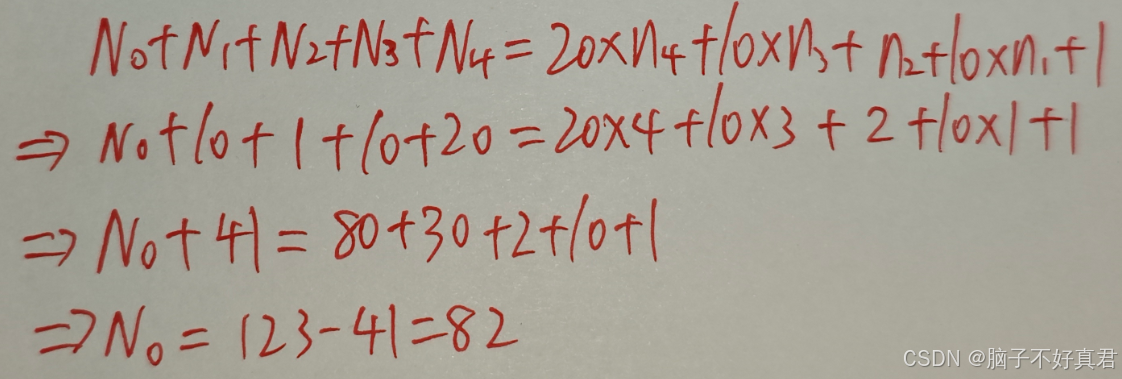 N₀+N₁+N₂+N₃+N₄=20×n₄+10×n₃+n₂+10×n₁+1
⇒ N₀+10+1+10+20=20×4+10×3+2+10×1+1
⇒ N₀+41=80+30+2+10+1
⇒ N₀=123-41=82
CSDN @脑子不好真君